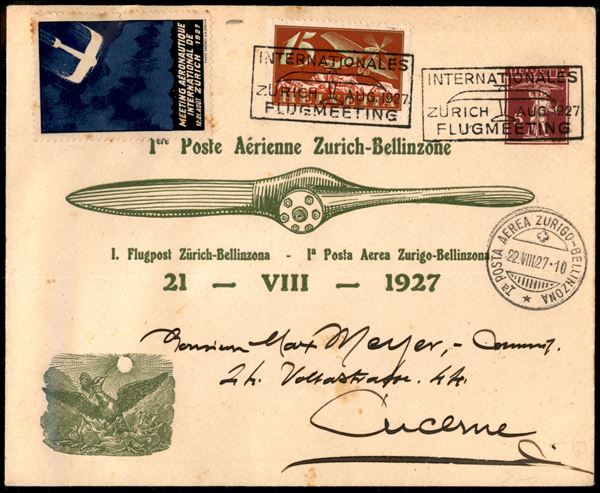 MEETING AÉRONAUTIQUE
INTERNATIONAL DE
ZÜRICH 1927
12-21. AOÛT
15
INTERNATIONALES
ZÜRICH AUG. 1927
FLUGMEETING
INTERNATIONALES
ZÜRICH AUG. 1927
FLUGMEETING
1ère Poste Aérienne Zurich-Bellinzone
I. Flugpost Zürich-Bellinzona - Ia Posta Aerea Zurigo-Bellinzona
21 — VIII — 1927
Ia POSTA AEREA ZURIGO-BELLINZONA
22.VIII.27-10
Monsieur Max Meyer,-
24. Voltastrasse 44
Lucerne